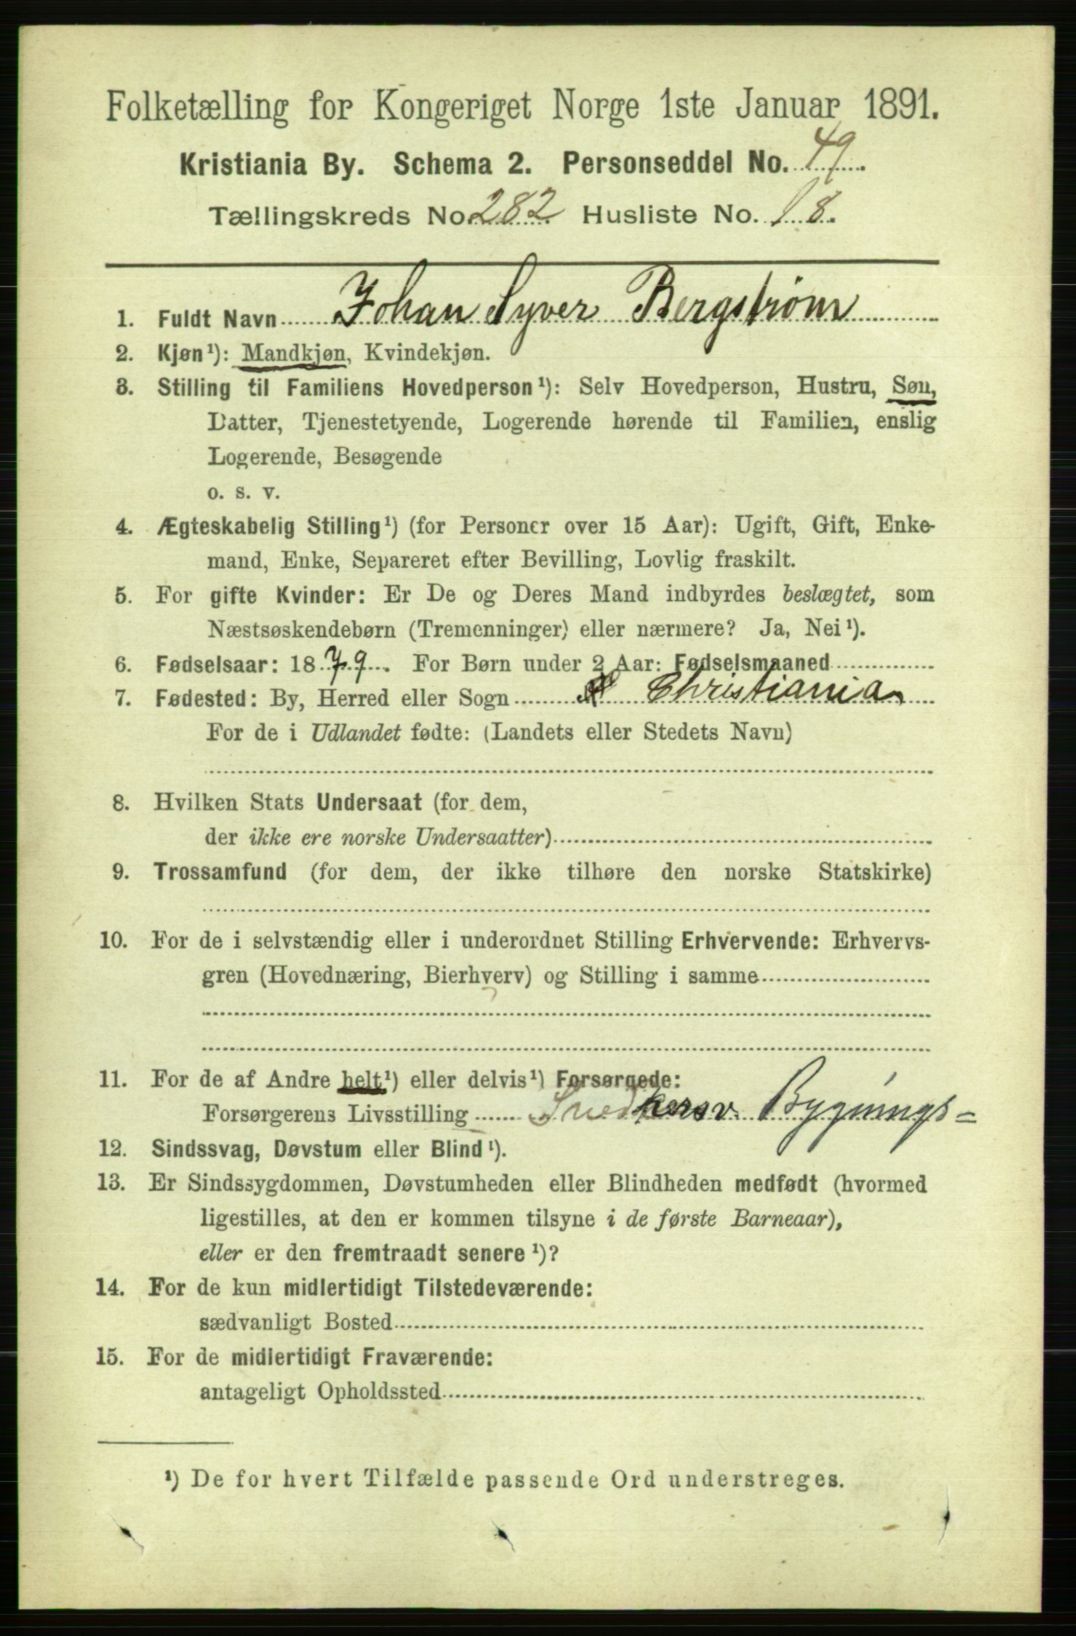 Folketælling for Kongeriget Norge 1ste Januar 1891.
Kristiania By. Schema 2. Personseddel No. 49.
Tællingskreds No. 282 Husliste No. 18.
1. Fuldt Navn Johan Syver Bergstrøm
2. Kjøn¹): Mandkjøn, Kvindekjøn.
3. Stilling til Familiens Hovedperson¹): Selv Hovedperson, Hustru, Søn,
Datter, Tjenestetyende, Logerende hørende til Familien, enslig
Logerende, Besøgende
o. s. v.
4. Ægteskabelig Stilling¹) (for Personer over 15 Aar): Ugift, Gift, Enke-
mand, Enke, Separeret efter Bevilling, Lovlig fraskilt.
5. For gifte Kvinder: Er De og Deres Mand indbyrdes beslægtet, som
Næstsøskendebørn (Tremenninger) eller nærmere? Ja, Nei¹).
6. Fødselsaar: 1879. For Børn under 2 Aar: Fødselsmaaned
7. Fødested: By, Herred eller Sogn Christiania
For de i Udlandet fødte: (Landets eller Stedets Navn)
8. Hvilken Stats Undersaat (for dem,
der ikke ere norske Undersaatter)
9. Trossamfund (for dem, der ikke tilhøre den norske Statskirke)
10. For de i selvstændig eller i underordnet Stilling Erhvervende: Erhvervs-
gren (Hovednæring, Bierhverv) og Stilling i samme
11. For de af Andre helt¹) eller delvis¹) Forsørgede:
Forsørgerens Livsstilling Snedkersv. Bygnings=
12. Sindssvag, Døvstum eller Blind¹).
13. Er Sindssygdommen, Døvstumheden eller Blindheden medfødt (hvormed
ligestilles, at den er kommen tilsyne i de første Barneaar),
eller er den fremtraadt senere¹)?
14. For de kun midlertidigt Tilstedeværende:
sædvanligt Bosted
15. For de midlertidigt Fraværende:
antageligt Opholdssted
¹) De for hvert Tilfælde passende Ord understreges.